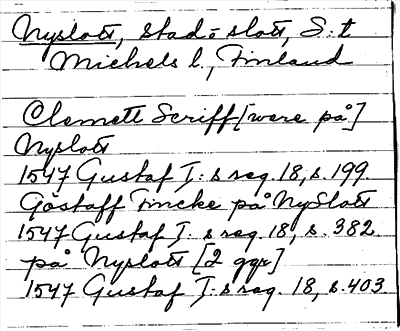 Nyslott, stad o slott, S:t
Michels l., Finland
Clemett Scriff [ware på]
Nyslott
1547 Gustaf I:s reg. 18, s. 199.
Göstaff Fincke på NySlott
1547 Gustaf I:s reg. 18, s. 382.
på Nyslott [2 ggr]
1547 Gustaf I:s reg. 18, s. 403.